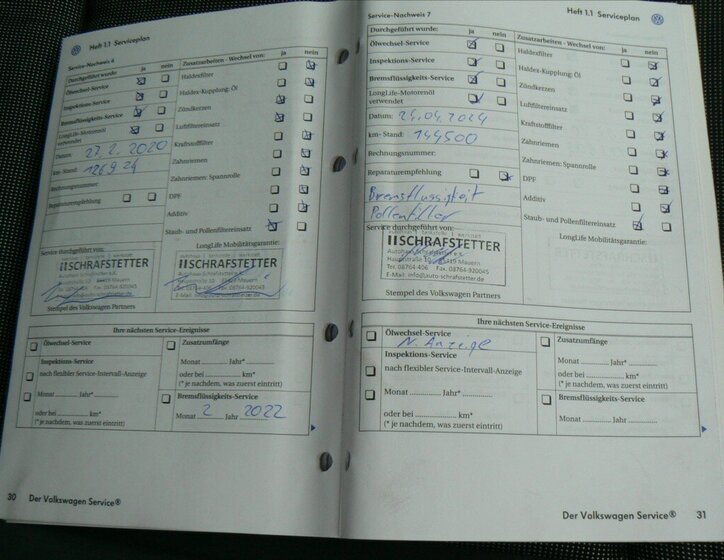 Heft 1.1 Serviceplan
Service-Nachweis 6
Durchgeführt wurde: ja nein
Ölwechsel-Service
Inspektions-Service
Bremsflüssigkeits-Service
LongLife-Motorenöl
verwendet
Datum: 27.2.2020
km-Stand: 126924
Rechnungsnummer:
Reparaturempfehlung
Zusatzarbeiten - Wechsel von: ja nein
Haldexfilter
Haldex-Kupplung: Öl
Zündkerzen
Luftfiltereinsatz
Kraftstofffilter
Zahnriemen
Zahnriemen: Spannrolle
DPF
Additiv
Staub- und Pollenfiltereinsatz
Service durchgeführt von:
LongLife Mobilitätsgarantie:
SCHRAFSTETTER
SCHRAFSTETTER
Stempel des Volkswagen Partners
Ihre nächsten Service-Ereignisse
Ölwechsel-Service
Inspektions-Service
nach flexibler Service-Intervall-Anzeige
Monat Jahr*
oder bei km*
(* je nachdem, was zuerst eintritt)
Zusatzumfänge
Monat Jahr*
oder bei km*
(* je nachdem, was zuerst eintritt)
Bremsflüssigkeits-Service
Monat 2 Jahr 2022
30 Der Volkswagen Service®
Heft 1.1 Serviceplan
Service-Nachweis 7
Durchgeführt wurde: ja nein
Ölwechsel-Service
Inspektions-Service
Bremsflüssigkeits-Service
LongLife-Motorenöl
verwendet
Datum: 24.04.2024
km-Stand: 144500
Rechnungsnummer:
Reparaturempfehlung
Bremsflüssigkeit
Pollenfilter
Zusatzarbeiten - Wechsel von: ja nein
Haldexfilter
Haldex-Kupplung: Öl
Zündkerzen
Luftfiltereinsatz
Kraftstofffilter
Zahnriemen
Zahnriemen: Spannrolle
DPF
Additiv
Staub- und Pollenfiltereinsatz
Service durchgeführt von:
LongLife Mobilitätsgarantie:
SCHRAFSTETTER
Autohaus Schrafstetter e.K.
Hauptstraße 10 85419 Mauern
Tel. 08764-406 Fax. 08764-920045
E-Mail: info@auto-schrafstetter.de
Stempel des Volkswagen Partners
Ihre nächsten Service-Ereignisse
Ölwechsel-Service
N. Anzeige
Inspektions-Service
nach flexibler Service-Intervall-Anzeige
Monat Jahr*
oder bei km*
(* je nachdem, was zuerst eintritt)
Zusatzumfänge
Monat Jahr*
oder bei km*
(* je nachdem, was zuerst eintritt)
Bremsflüssigkeits-Service
Monat Jahr
Der Volkswagen Service® 31